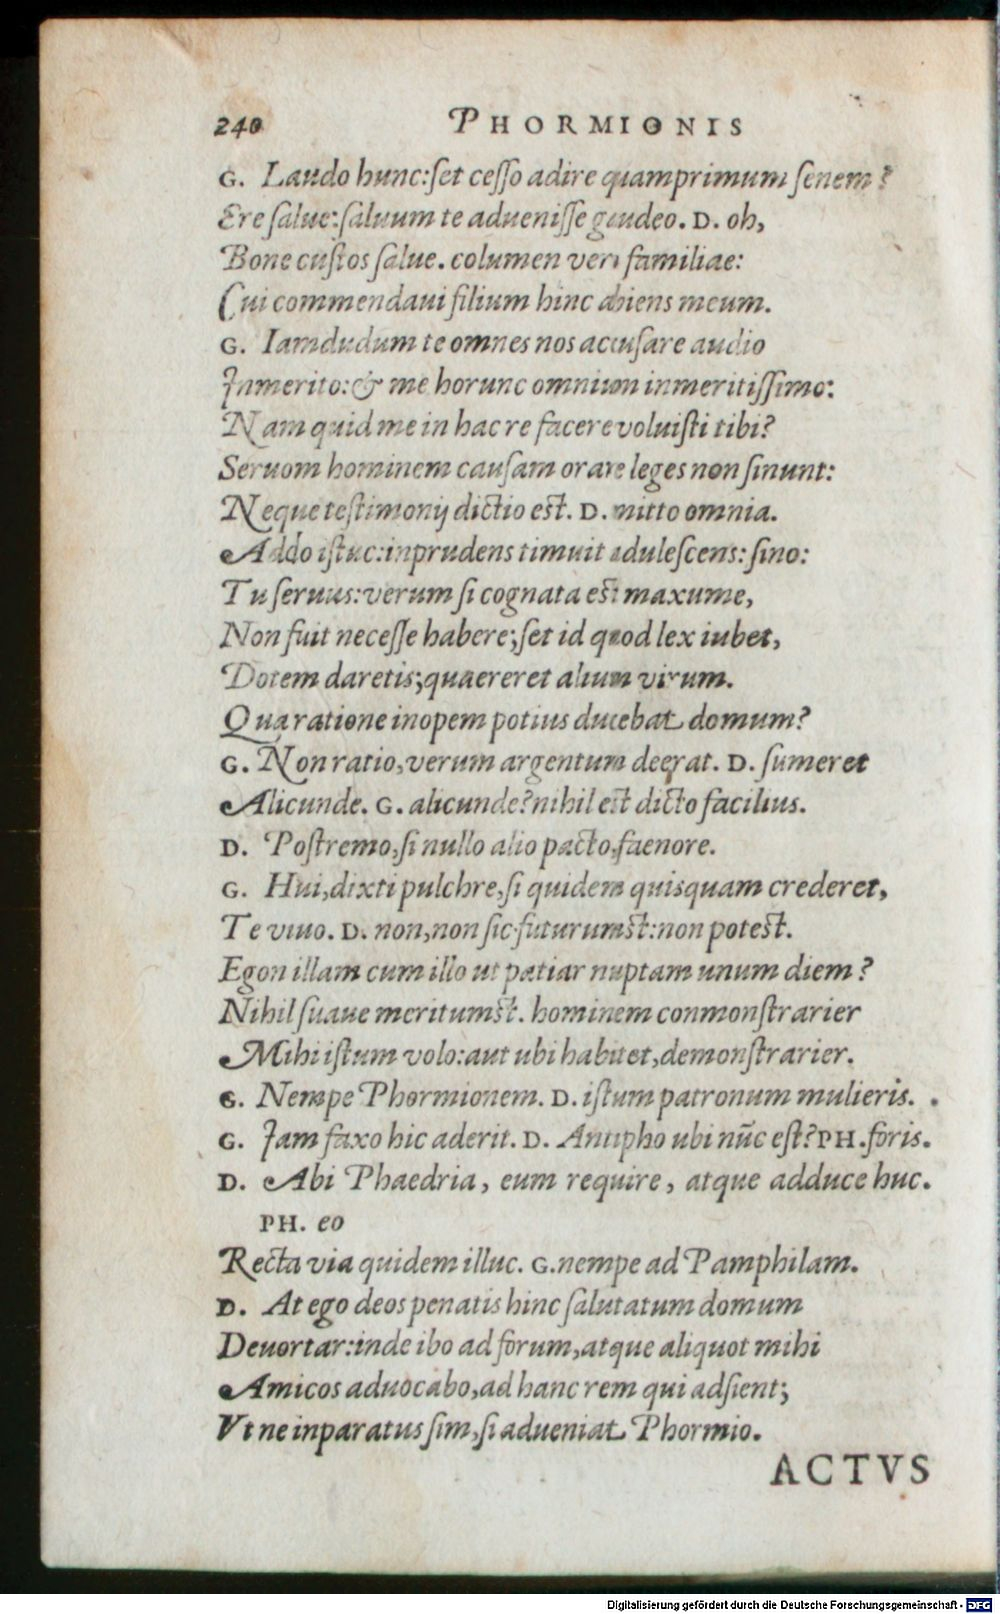 240 PHORMIONIS
G. Laudo hunc:ſet ceſſo adire quamprimum ſenem?
Ere ſalue:ſaluum te adueniſſe gaudeo. D. oh,
Bone cuſtos ſalue. columen vero familiae:
Cui commendaui filium hinc abiens meum.
G. Iamdudum te omnes nos accuſare audio
Inmerito:& me horunc omnium inmeritiſſimo:
Nam quid me in hac re facere voluiſti tibi?
Seruom hominem cauſam orare leges non ſinunt:
Neque teſtimonij dictio eſt. D. mitto omnia.
Addo iſtuc:inprudens timuit aduleſcens: ſino:
Tu ſeruus:verum ſi cognata eſt maxume,
Non fuit neceſſe habere;ſet id quod lex iubet,
Dotem daretis;quaereret alium virum.
Qua ratione inopem potius ducebat domum?
G. Non ratio,verum argentum deerat. D. ſumeret
Alicunde. G. alicunde?nihil eſt dicto facilius.
D. Poſtremo,ſi nullo alio pacto,faenore.
G. Hui,dixti pulchre,ſi quidem quisquam crederet,
Te viuo. D. non,non ſic futurumſt:non poteſt.
Egon illam cum illo ut patiar nuptam unum diem?
Nihil ſuaue meritumſt. hominem conmonſtrarier
Mihi iſtum volo:aut ubi habitet,demonſtrarier.
G. Nempe Phormionem. D. iſtum patronum mulieris.
G. Jam faxo hic aderit. D. Antipho ubi nūc eſt?PH.foris.
D. Abi Phaedria, eum require, atque adduce huc.
PH. eo
Recta via quidem illuc. G.nempe ad Pamphilam.
D. At ego deos penatis hinc ſalutatum domum
Deuortar:inde ibo ad forum,atque aliquot mihi
Amicos aduocabo,ad hanc rem qui adſient;
Vt ne inparatus ſim,ſi adueniat Phormio.
ACTVS
Digitalisierung gefördert durch die Deutsche Forschungsgemeinschaft - DFG